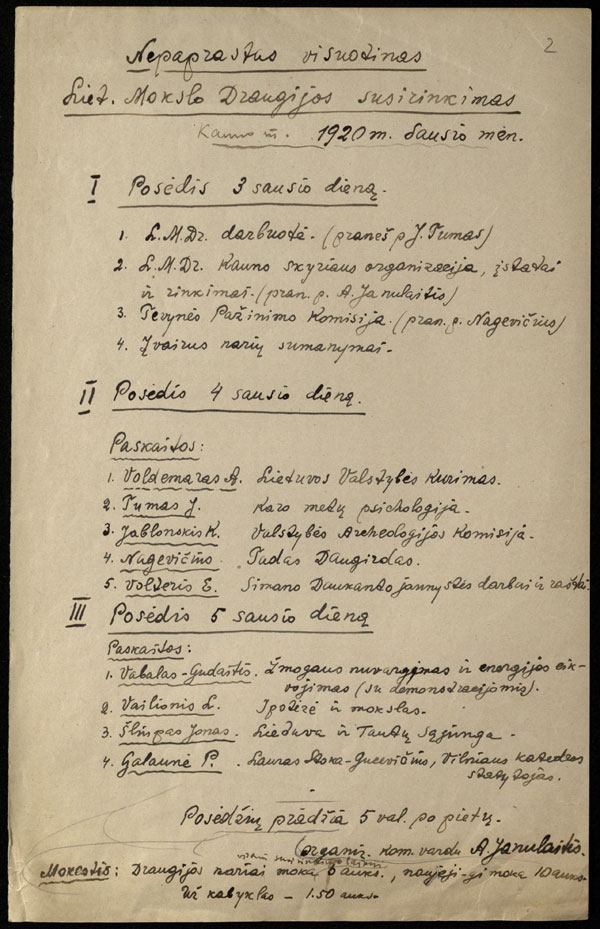 2
Nepaprastas visuotinas
Liet. Mokslo Draugijos susirinkimas
Kauno m. 1920 m. Sausio mėn.
I Posėdis 3 sausio dieną.
1. L.M.Dr. darbuotė. (praneš p J. Tumas)
2. L.M.Dr. Kauno skyriaus organizacija, įstatai
ir rinkimai. (pran. p. A. Janulaitis)
3. Tėvynės Pažinimo Komisija. (pran. p. Nagevičius)
4. Įvairus narių sumanymai.
II Posėdis 4 sausio dieną.
Paskaitos:
1. Voldemaras A. Lietuvos Valstybės Kurimas.
2. Tumas J. Karo metų psichologija.
3. Jablonskis K. Valstybės Archeologijos Komisija.
4. Nagevičius Tadas Daugirdas.
5. Volteris E. Simano Daukanto jaunystės darbai ir raštai
III Posėdis 5 sausio dieną
Paskaitos:
1. Vabalas-Gudaitis. Žmogaus nuvargimas ir energijos eik-
vojimas (su demonstracijomis).
2. Vailionis L. Ipotezė ir mokslas.
3. Šliupas Jonas. Lietuva ir Tautų Sąjunga.
4. Galaunė P. Lauras Stoka-Gucevičius, Vilniaus katedros
statytojas.
Posėdžių pradžia 5 val. po pietų.
Organiz. kom. vardu A. Janulaitis.
Mokestis: Draugijos nariai moka 5 auks., naujeji-gi moka 10 auks.
Už kabyklas – 1.50 auks.